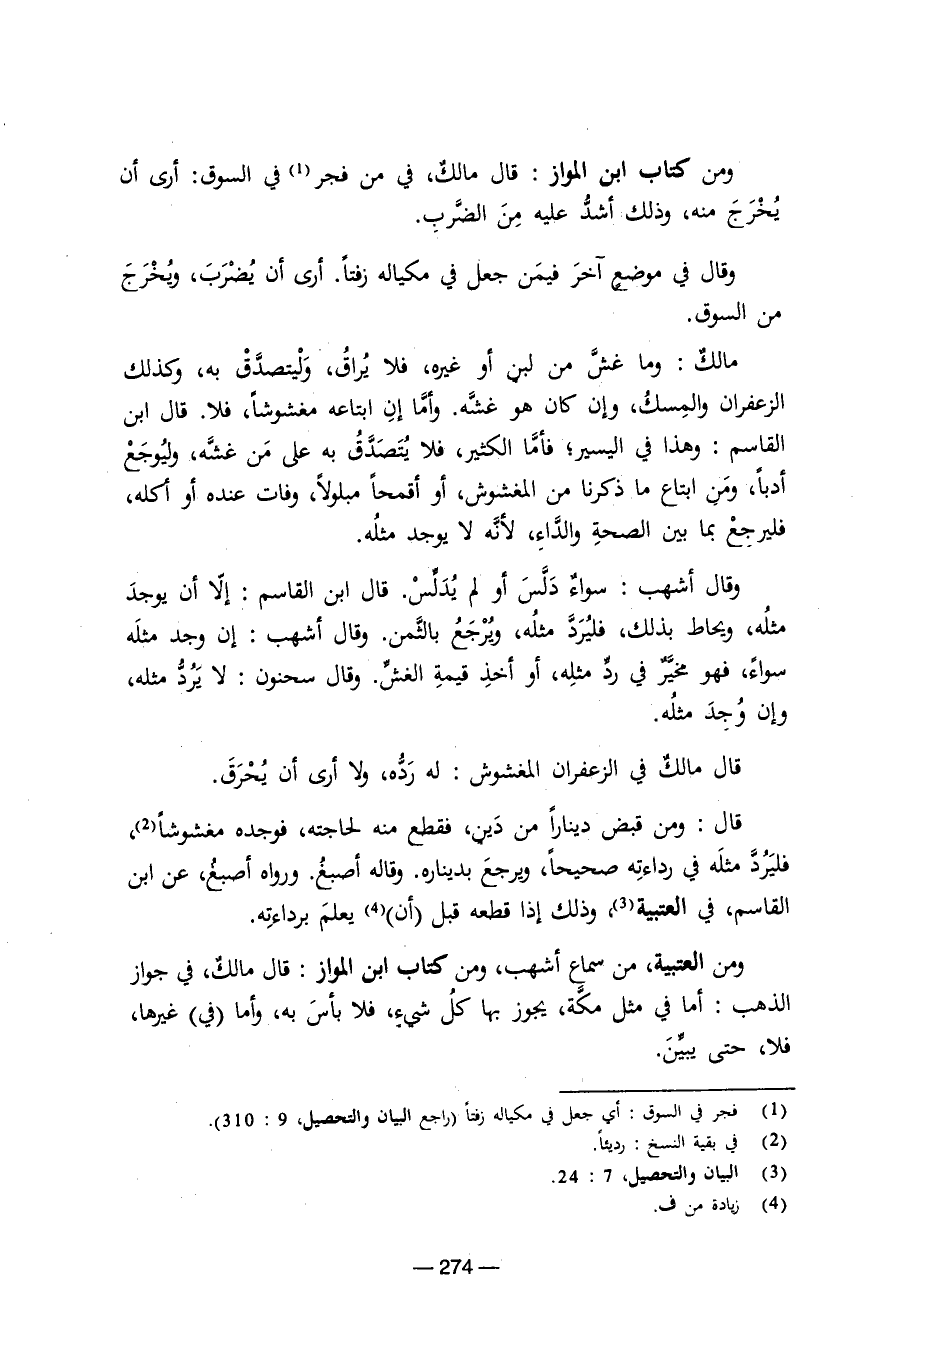 ومن كتاب ابن المواز : قال مالكٌ، في من فجر (1) في السوق: أرى أن
يُخْرَجَ منه، وذلك أشدُّ عليه مِنَ الضَّربِ.
وقال في موضعٍ آخرَ فيمَن جعل في مكياله زفتاً. أرى أن يُضْرَبَ، ويُخْرَجَ
من السوق.
مالكٌ : وما غشَّ من لبنٍ أو غيره، فلا يُراقُ، وَلْيتصدَّقْ به، وكذلك
الزعفران والمِسكُ، وإن كان هو غشَّه. وأمَّا إنِ ابتاعه مغشوشاً، فلا. قال ابن
القاسم : وهذا في اليسير؛ فأمَّا الكثير، فلا يُتَصَدَّقُ به على مَن غشَّه، وليُوجَعْ
أدباً، ومَنِ ابتاع ما ذكرنا من المغشوش، أو أقمحاً مبلولاً، وفات عنده أو أكله،
فليرجِعْ بما بين الصحةِ والدَّاءِ، لأنَّه لا يوجد مثلُه.
وقال أشهب : سواءٌ دَلَّسَ أو لم يُدَلِّسْ. قال ابن القاسم : إلّا أن يوجدَ
مثلُه، ويحاط بذلك، فليُرَدَّ مثلُه، ويُرْجَعُ بالثَّمن. وقال أشهب : إن وجد مثلَه
سواءً، فهو مخيَّرٌ في ردِّ مثلِه، أو أخذِ قيمةِ الغشِّ. وقال سحنون : لا يَرُدُّ مثله،
وإن وُجِدَ مثلُه.
قال مالكٌ في الزعفران المغشوش : له رَدُّه، ولا أرى أن يُحْرَقَ.
قال : ومن قبض ديناراً من دَينٍ، فقطع منه لحاجته، فوجده مغشوشاً(2)،
فليَرُدَّ مثلَه في رداءتِه صحيحاً، ويرجعَ بديناره. وقاله أصبغُ. ورواه أصبغُ، عن ابن
القاسم، في العتبية(3)، وذلك إذا قطعه قبل (أن)(4) يعلمَ برداءتِه.
ومن العتبية، من سماع أشهب، ومن كتاب ابن المواز : قال مالكٌ، في جواز
الذهب : أما في مثل مكَّة، يجوز بها كلُ شيءٍ، فلا بأسَ به، وأما (في) غيرها،
فلا، حتى يبيِّنَ.
(1) فجر في السوق : أي جعل في مكياله زفتاً (راجع البيان والتحصيل، 9 : 310).
(2) في بقية النسخ : رديئاً.
(3) البيان والتحصيل، 7 : 24.
(4) زيادة من ف.
— 274 —